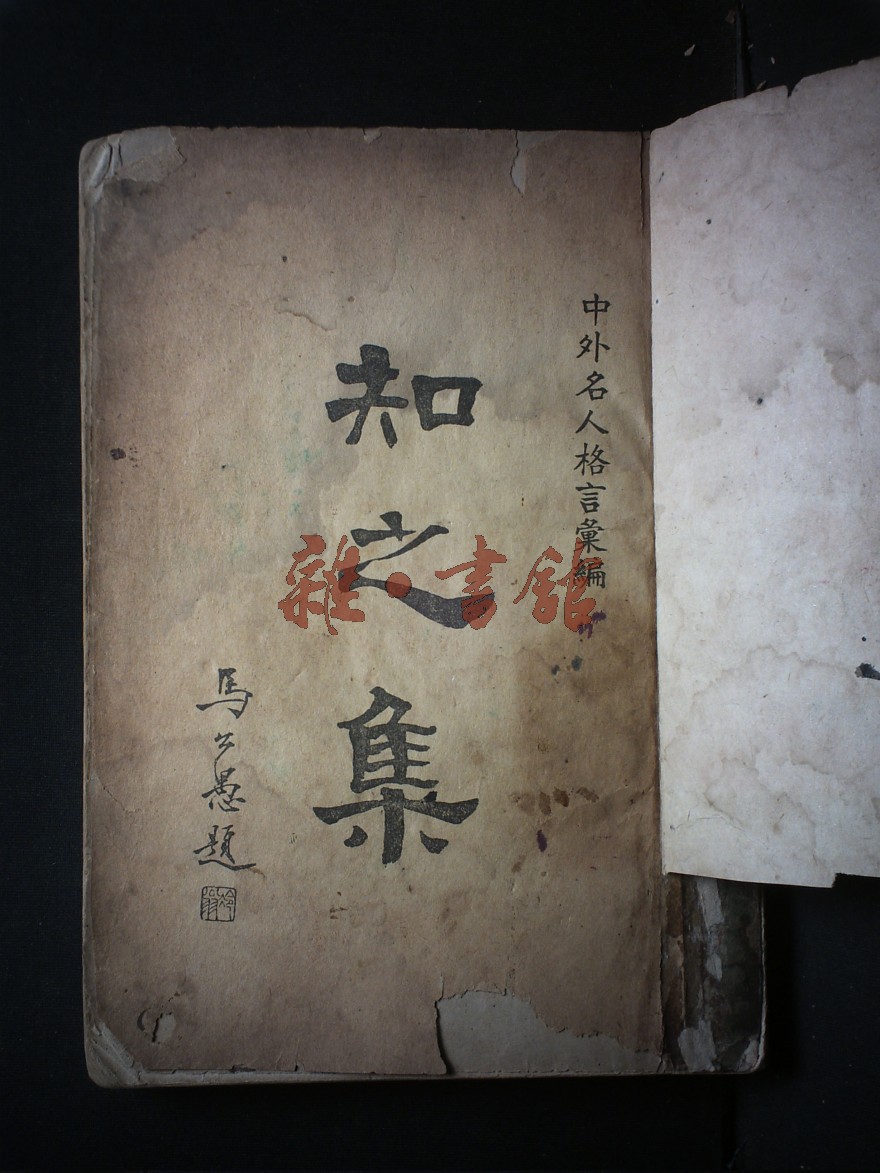 中外名人格言彙編
知之集
馬公愚題
雜·書館